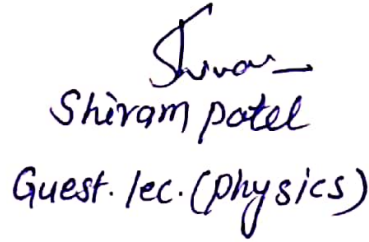 Shivam patel
Guest. lec. (physics)